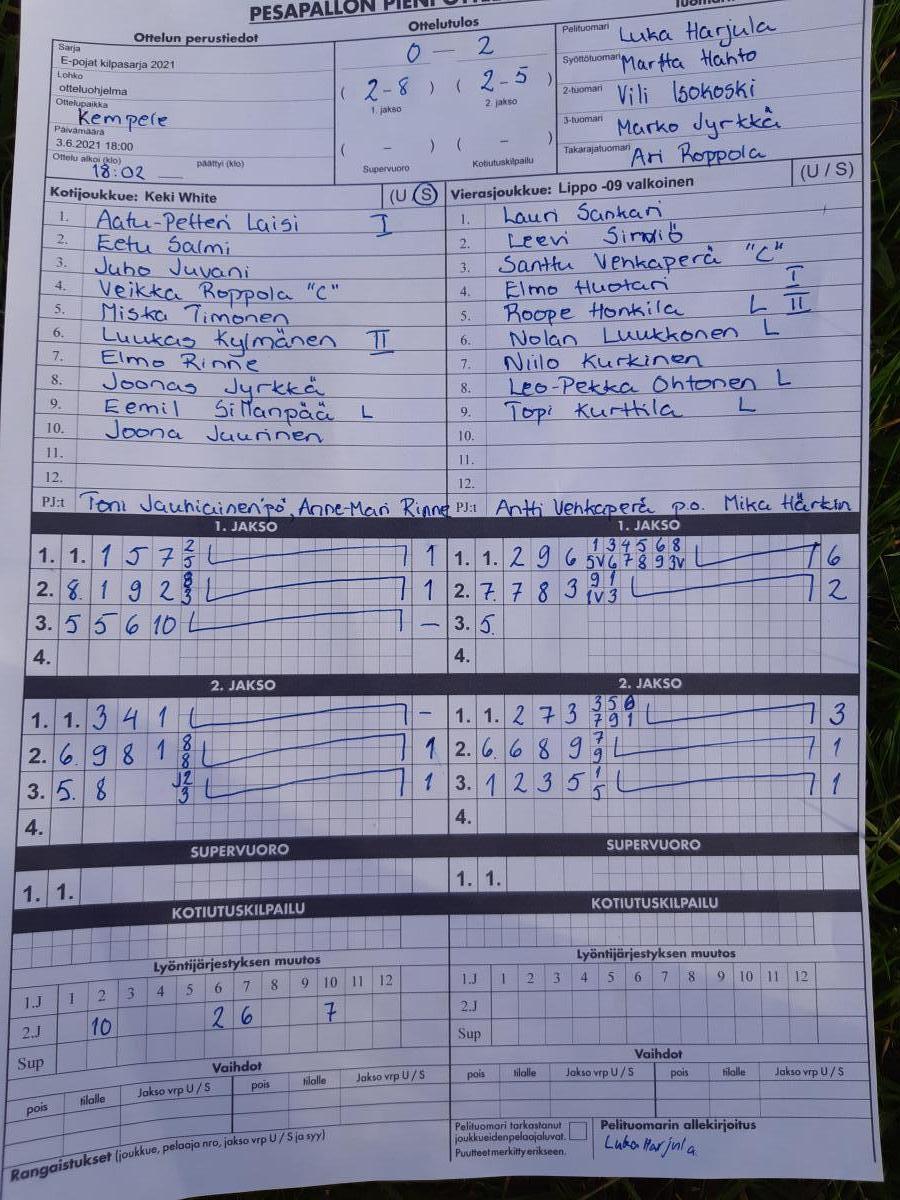 PESÄPALLON PIENI
Ottelun perustiedot
Sarja
E-pojat kilpasarja 2021
Lohko
otteluohjelma
Ottelupaikka
Kempele
Päivämäärä
3.6.2021 18:00
Ottelu alkoi (klo) 18:02 päättyi (klo)
Ottelutulos
0 - 2
( 2-8 ) ( 2-5 )
1. jakso 2. jakso
( - ) ( - )
Supervuoro Kotiutuskilpailu
Pelituomari Luka Harjula
Syöttötuomari Martta Hahto
2-tuomari Vili Isokoski
3-tuomari Marko Jyrkkä
Takarajatuomari Ari Roppola
Kotijoukkue: Keki White (U S)
1. Aatu-Petteri Laisi I
2. Eetu Salmi
3. Juho Juvani
4. Veikka Roppola "C"
5. Miska Timonen
6. Luukas Kylmänen II
7. Elmo Rinne
8. Joonas Jyrkkä
9. Eemil Sillanpää L
10. Joona Jaurinen
11.
12.
PJ:t Toni Jauhiainen pö, Anne-Mari Rinne
Vierasjoukkue: Lippo -09 valkoinen (U / S)
1. Lauri Sankari
2. Leevi
3. Santtu Venkaperä "C"
4. Elmo Huotari I
5. Roope Honkila L II
6. Nolan Luukkonen L
7. Niilo Kurkinen
8. Leo-Pekka Ohtonen L
9. Topi Kurttila L
10.
11.
12.
PJ:t Antti Venkaperä p.o. Mika Härkin
1. JAKSO
1. 1. 1 5 7 2 5 1
2. 8. 1 9 2 8 3 1
3. 5 5 6 10 -
4.
1. JAKSO
1. 1. 2 9 6 1 3 4 5 6 8 5V 6 7 8 9 3V 6
2. 7. 7 8 3 9 1 1V 3 2
3. 5.
4.
2. JAKSO
1. 1. 3 4 1 -
2. 6. 9 8 1 8 8 1
3. 5. 8 J2 3 1
4.
2. JAKSO
1. 1. 2 7 3 3 5 6 7 9 1 3
2. 6. 6 8 9 7 9 1
3. 1 2 3 5 1 5 1
4.
SUPERVUORO
1. 1.
SUPERVUORO
1. 1.
KOTIUTUSKILPAILU
KOTIUTUSKILPAILU
Lyöntijärjestyksen muutos
1.J 1 2 3 4 5 6 7 8 9 10 11 12
2.J 10 2 6 7
Sup
Lyöntijärjestyksen muutos
1.J 1 2 3 4 5 6 7 8 9 10 11 12
2.J
Sup
Vaihdot
pois tilalle Jakso vrp U / S pois tilalle Jakso vrp U / S
Vaihdot
pois tilalle Jakso vrp U / S pois tilalle Jakso vrp U / S
Rangaistukset (joukkue, pelaaja nro, jakso vrp U / S ja syy)
Pelituomari tarkastanut
joukkueidenpelaajaluvat.
Puutteet merkitty erikseen.
Pelituomarin allekirjoitus
Luka Harjula